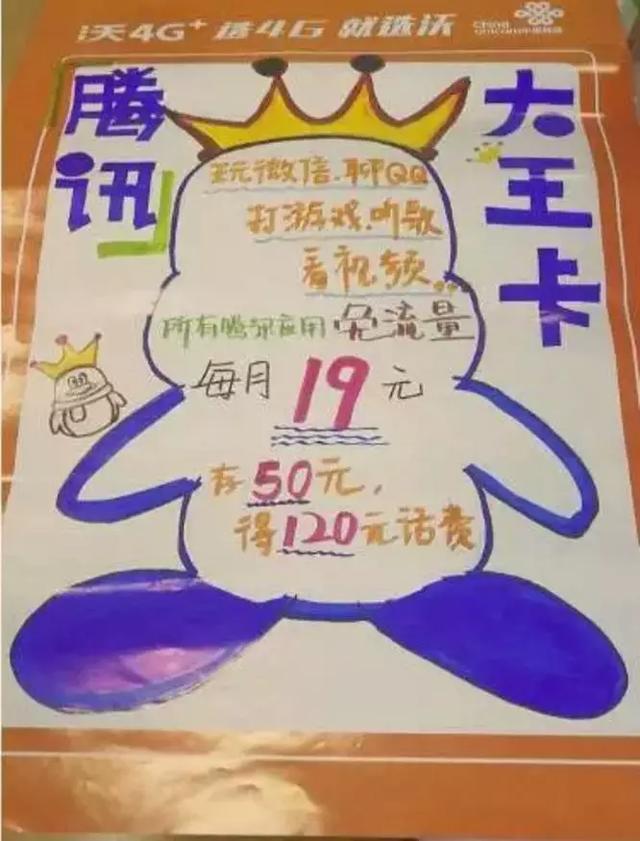 沃4G⁺ 选4G 就选沃
China unicom中国联通
腾讯
大王卡
玩微信.聊QQ
打游戏.听歌
看视频..
所有腾讯应用 免流量
每月19元
存50元,
得120元话费